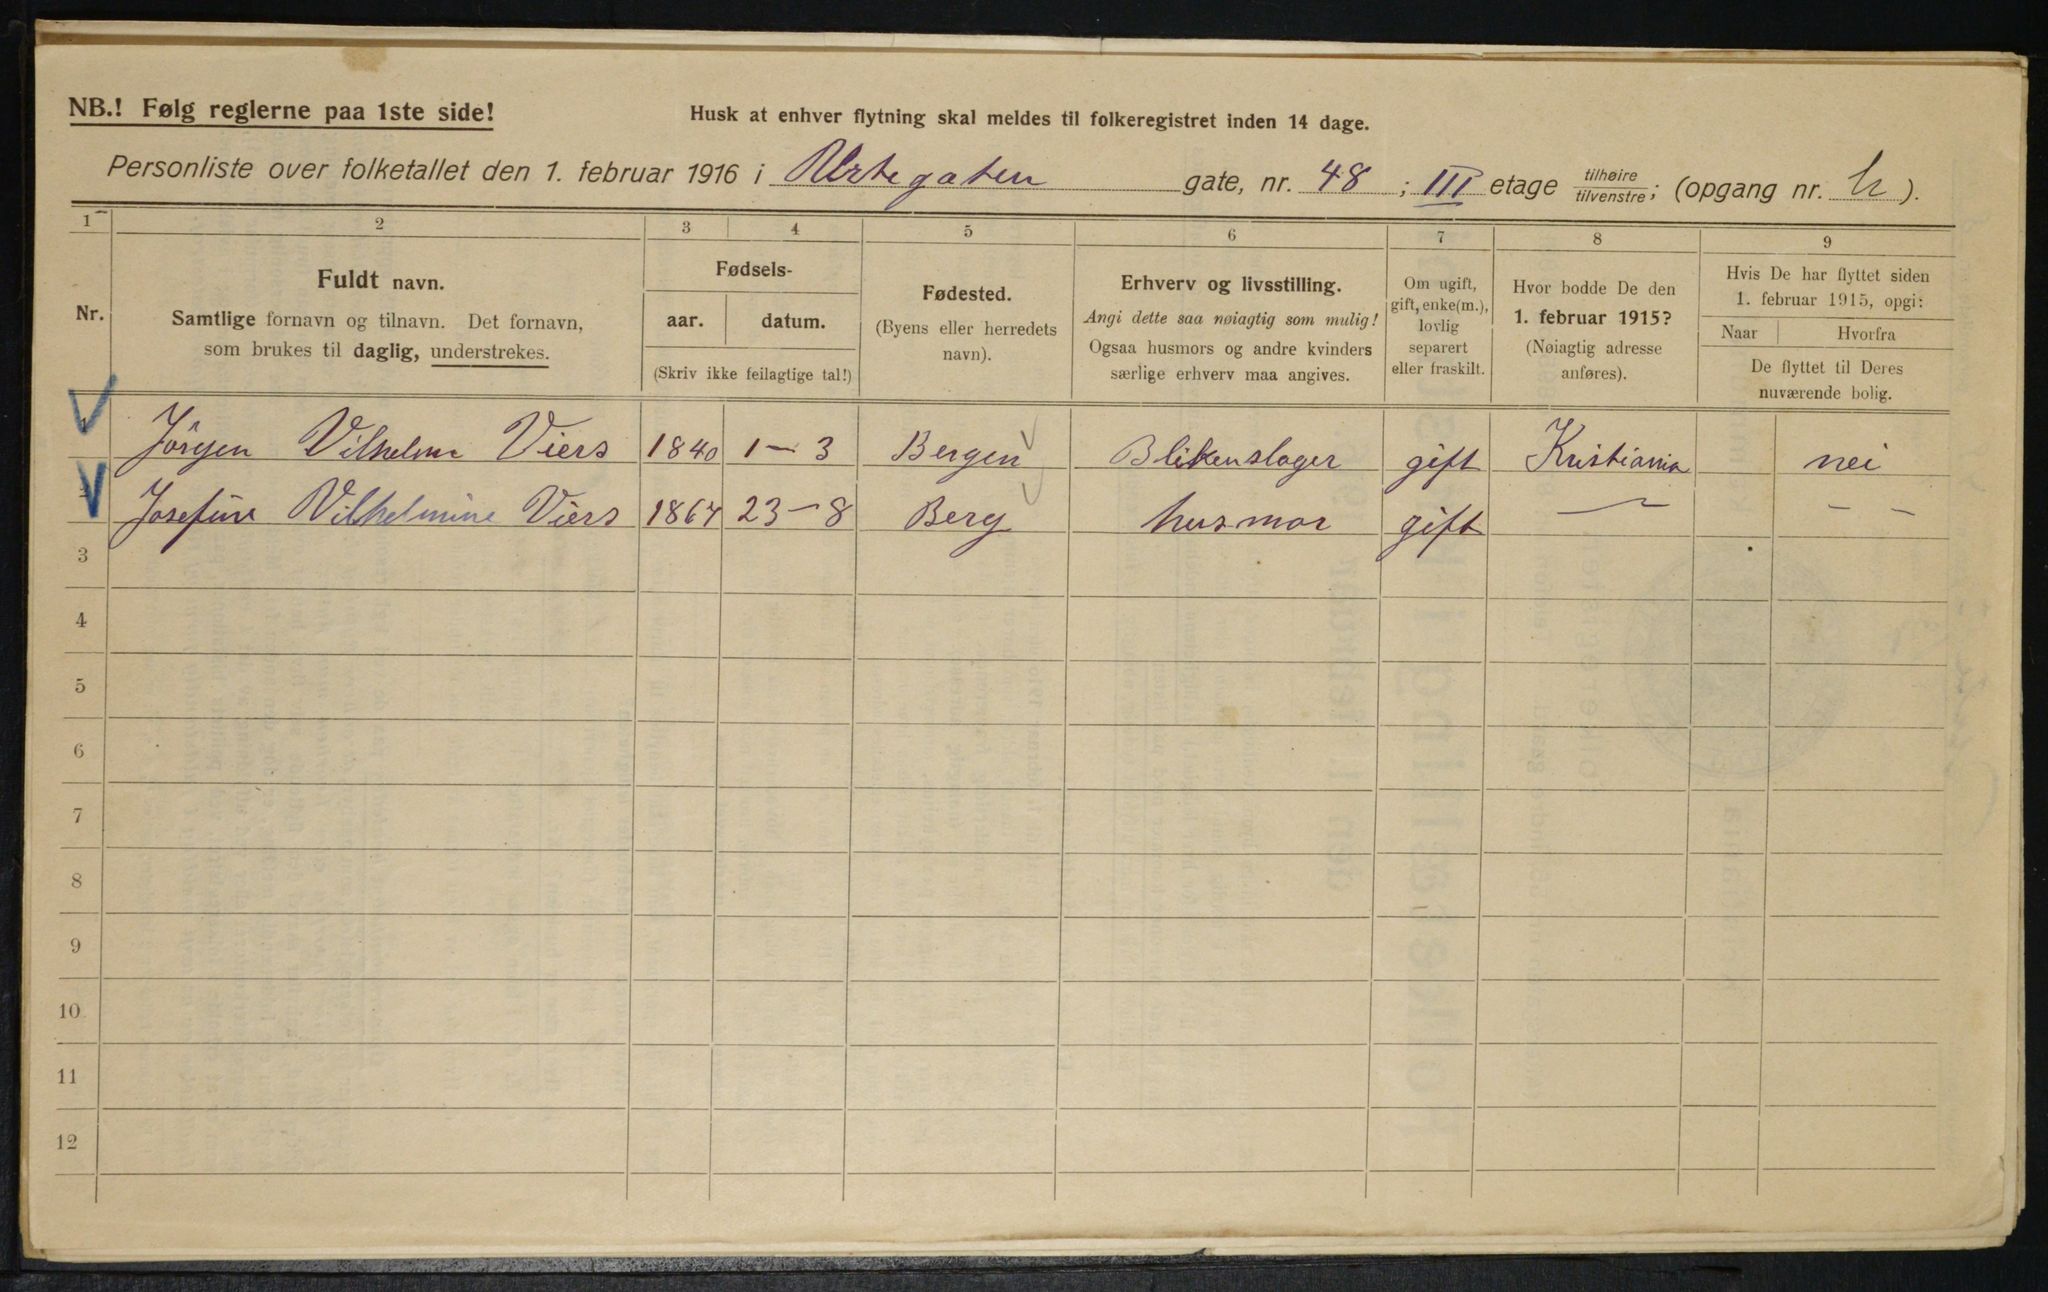 NB.! Følg reglerne paa 1ste side!
Husk at enhver flytning skal meldes til folkeregistret inden 14 dage.
Personliste over folketallet den 1. februar 1916 i Urtegaten gate, nr. 48 ; III etage tilhøire/tilvenstre; (opgang nr. ).
1 2 3 4 5 6 7 8 9
Nr.
Fuldt navn.
Samtlige fornavn og tilnavn. Det fornavn,
som brukes til daglig, understrekes.
Fødsels-
aar. datum.
(Skriv ikke feilagtige tal!)
Fødested.
(Byens eller herredets
navn).
Erhverv og livsstilling.
Angi dette saa nøiagtig som mulig!
Ogsaa husmors og andre kvinders
særlige erhverv maa angives.
Om ugift,
gift, enke(m.),
lovlig
separert
eller fraskilt.
Hvor bodde De den
1. februar 1915?
(Nøiagtig adresse
anføres).
Hvis De har flyttet siden
1. februar 1915, opgi:
Naar Hvorfra
De flyttet til Deres
nuværende bolig.
1 Jörgen Vilhelm Viers 1840 1-3 Bergen Blikenslager gift Kristiania nei
2 Josefine Vilhelmine Viers 1864 23-8 Berg husmor gift — — —
3
4
5
6
7
8
9
10
11
12